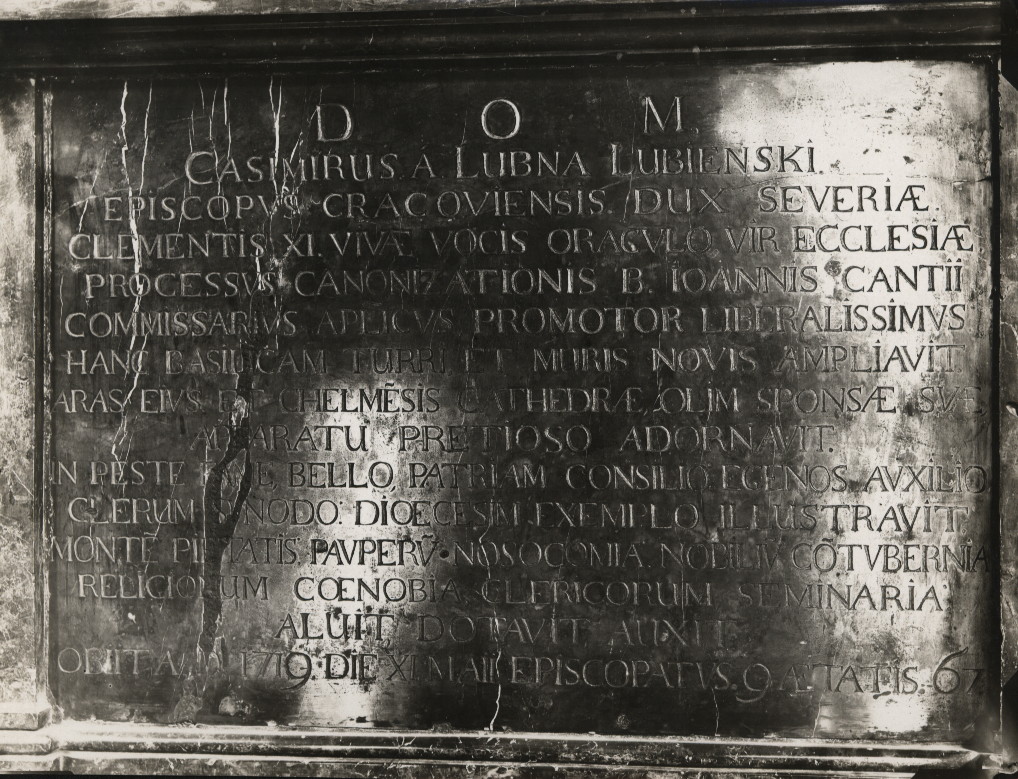 D O M.
CASIMIRUS A LUBNA LUBIENSKI.
EPISCOPVS CRACOVIENSIS. DUX SEVERIÆ.
CLEMENTIS XI. VIVÆ VOCIS ORACVLO VIR ECCLESIÆ,
PROCESSVS CANONIZATIONIS B. IOANNIS CANTII
COMMISSARIVS APLICVS PROMOTOR LIBERALISSIMVS
HANC BASILICAM TURRI ET MURIS NOVIS AMPLIAVIT
ARAS EIVS ET CHELMĒSIS CATHEDRÆ, OLIM SPONSÆ SVÆ,
APPARATU PRETIOSO ADORNAVIT.
IN PESTE FAME, BELLO, PATRIAM CONSILIO EGENOS AVXILIO
CLERUM SYNODO. DIOECESIM EXEMPLO ILLUSTRAVIT.
MONTĒ PIETATIS PAVPERV̄ NOSOCOMIA. NOBILIV̄ CŌTVBERNIA
RELIGIOSORUM CŒNOBIA CLERICORUM SEMINARIA
ALUIT DOTAVIT AUXIT
OBIIT 1719. DIE XI. MAII EPISCOPATVS. 9 ÆTATIS. 67